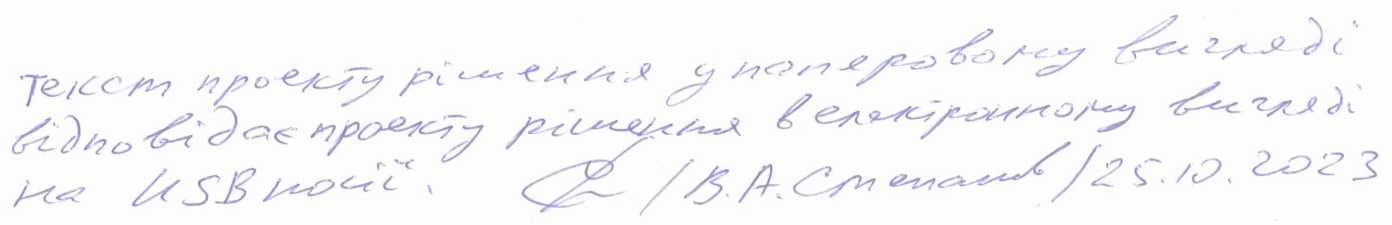 текст проекту рішення у паперовому вигляді
відповідає проекту рішення в електронному вигляді
на USB носії. /В.А.Степанов/25.10.2023